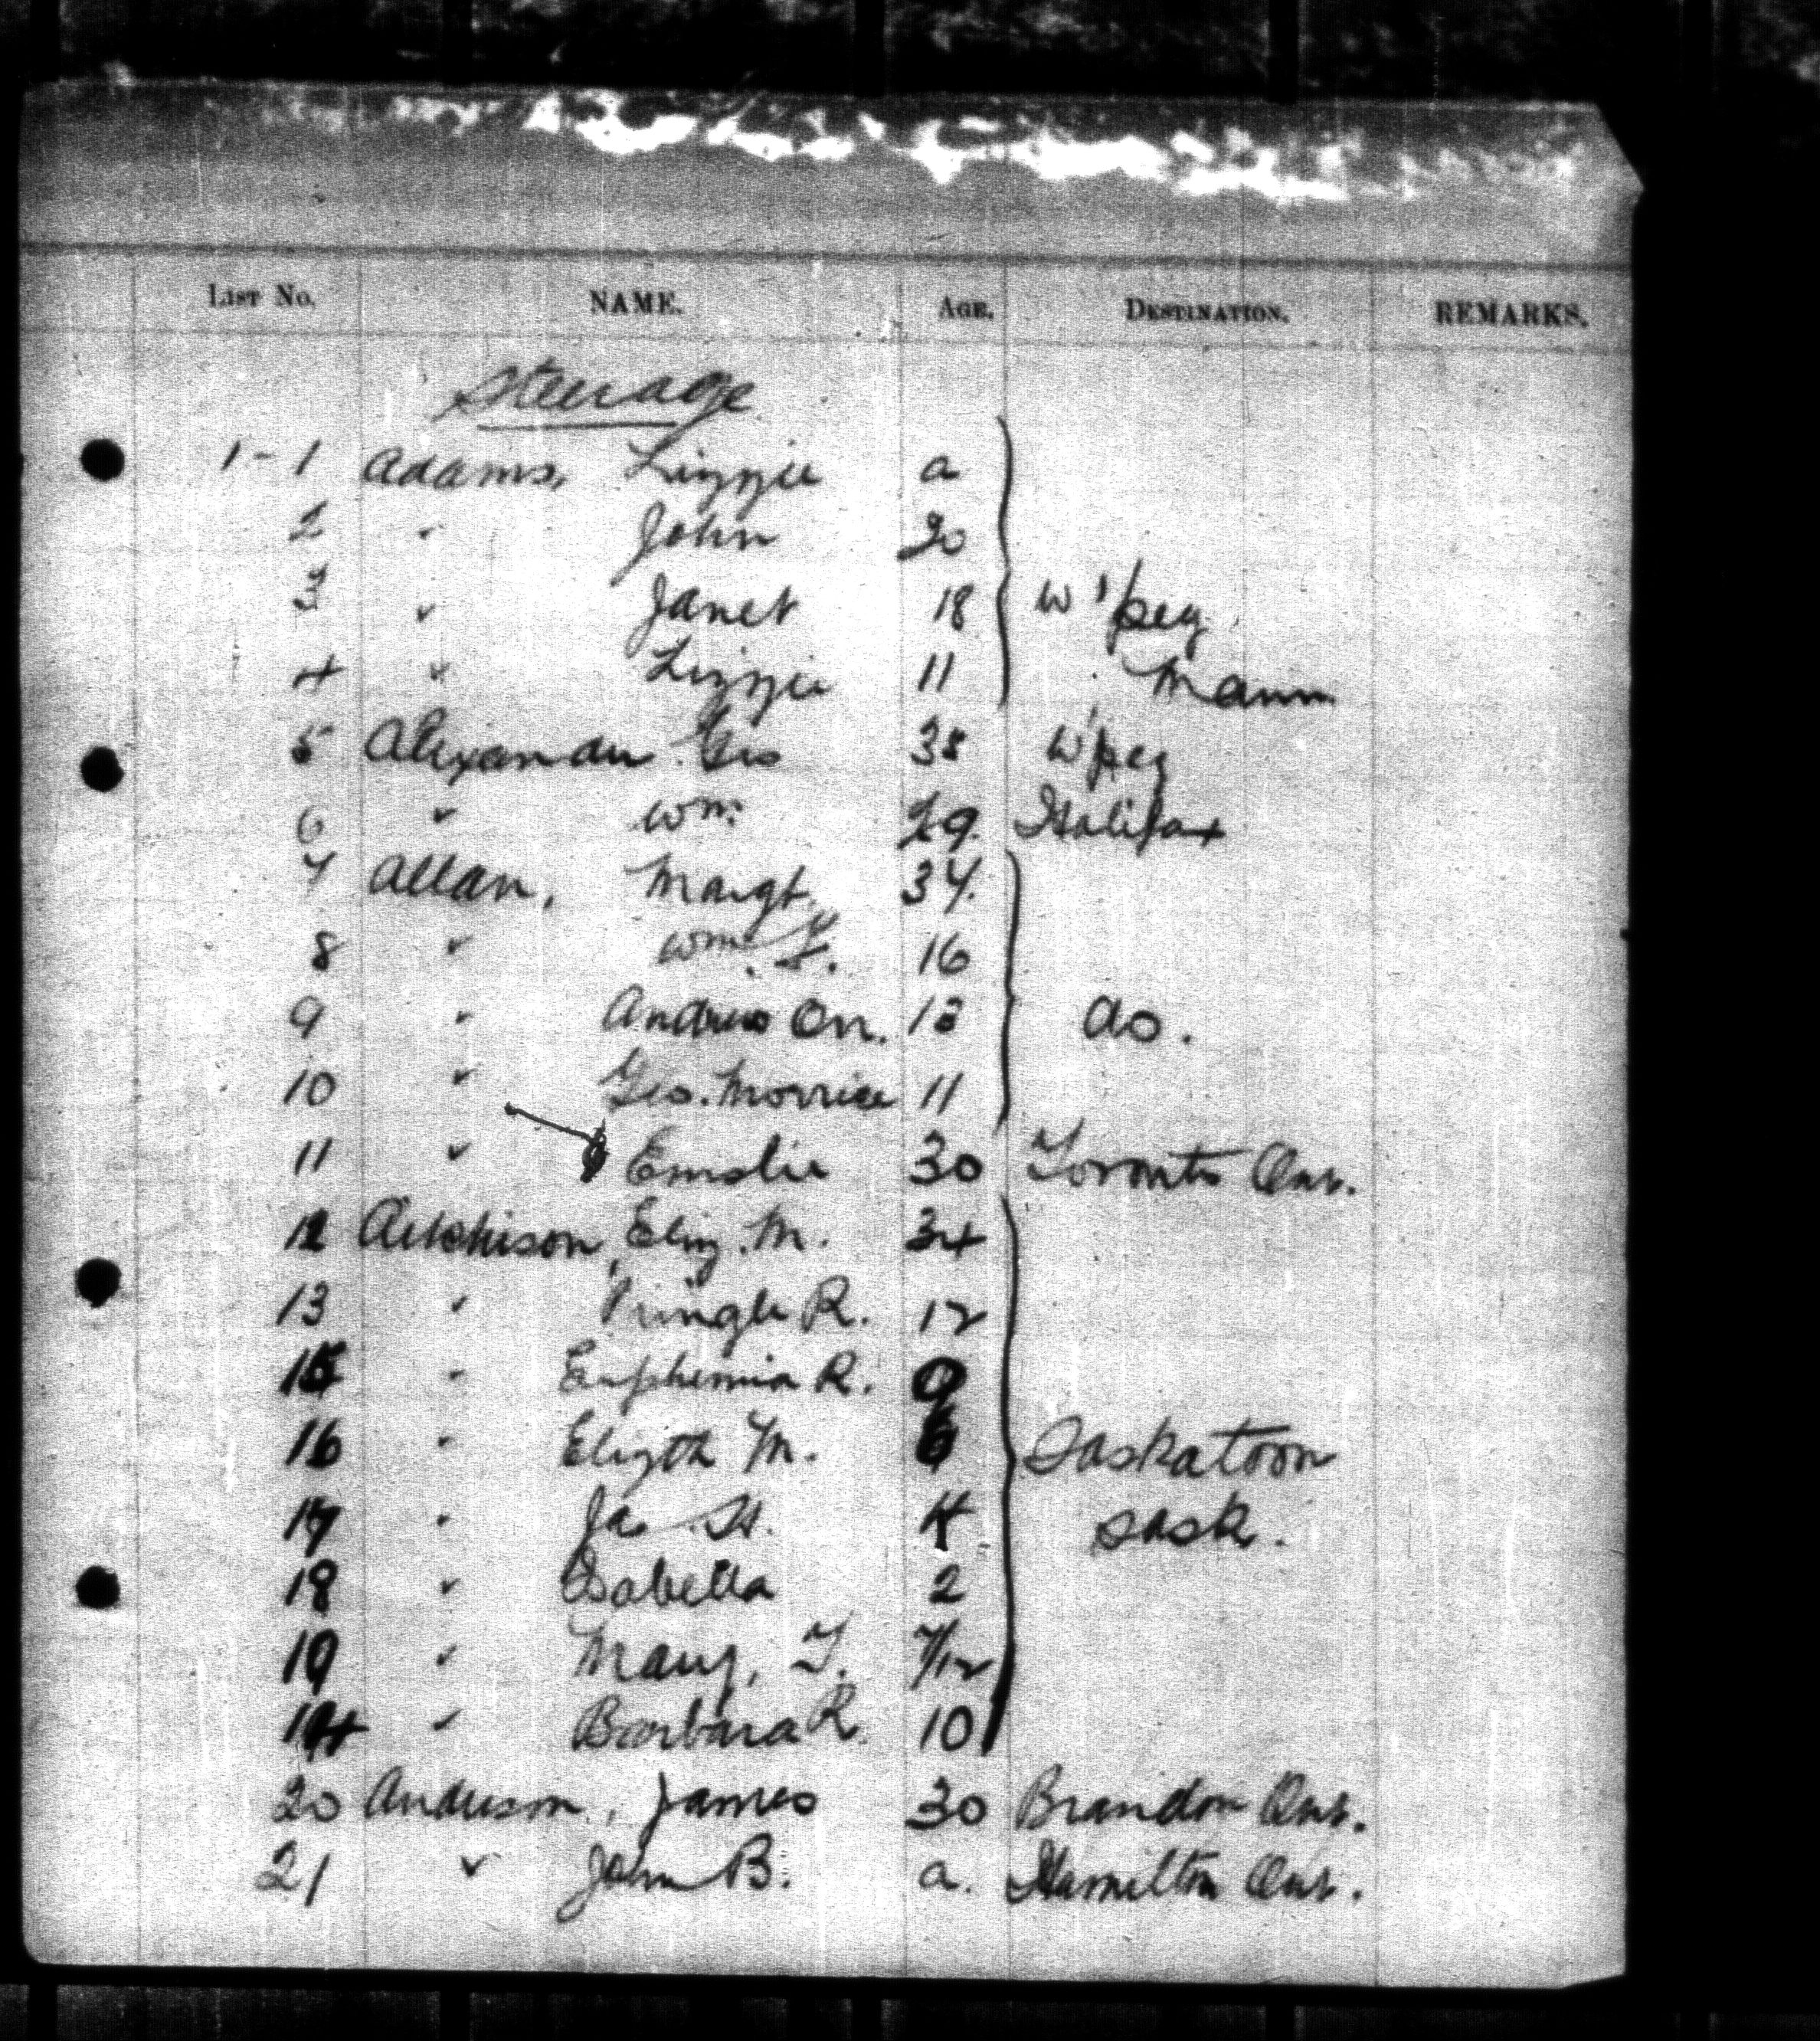 List No. NAME. Age. Destination. REMARKS.
Steerage
1-1 Adams, Lizzie a
2 " John 20
3 " Janet 18 W'peg
4 " Lizzie 11 Mann
5 Alexander Geo 38 W'peg
6 " Wm. 29. Halifax
7 Allan, Margt. 34.
8 " Wm. Y. 16
9 " Andrew Orr. 13 do.
10 " Geo. Morrice 11
11 " Emslie 30 Toronto Ont.
12 Aitchison, Eliz. M. 34
13 " Pringle R. 12
15 " Euphemia R. 9
16 " Elizth M. 6 Saskatoon
17 " Jas H. 4 Sask.
18 " Isabella 2
19 " Mary, T. 7/12
14 " Barbara R. 10
20 Anderson, James 30 Brandon Ont.
21 " John B. a. Hamilton Ont.